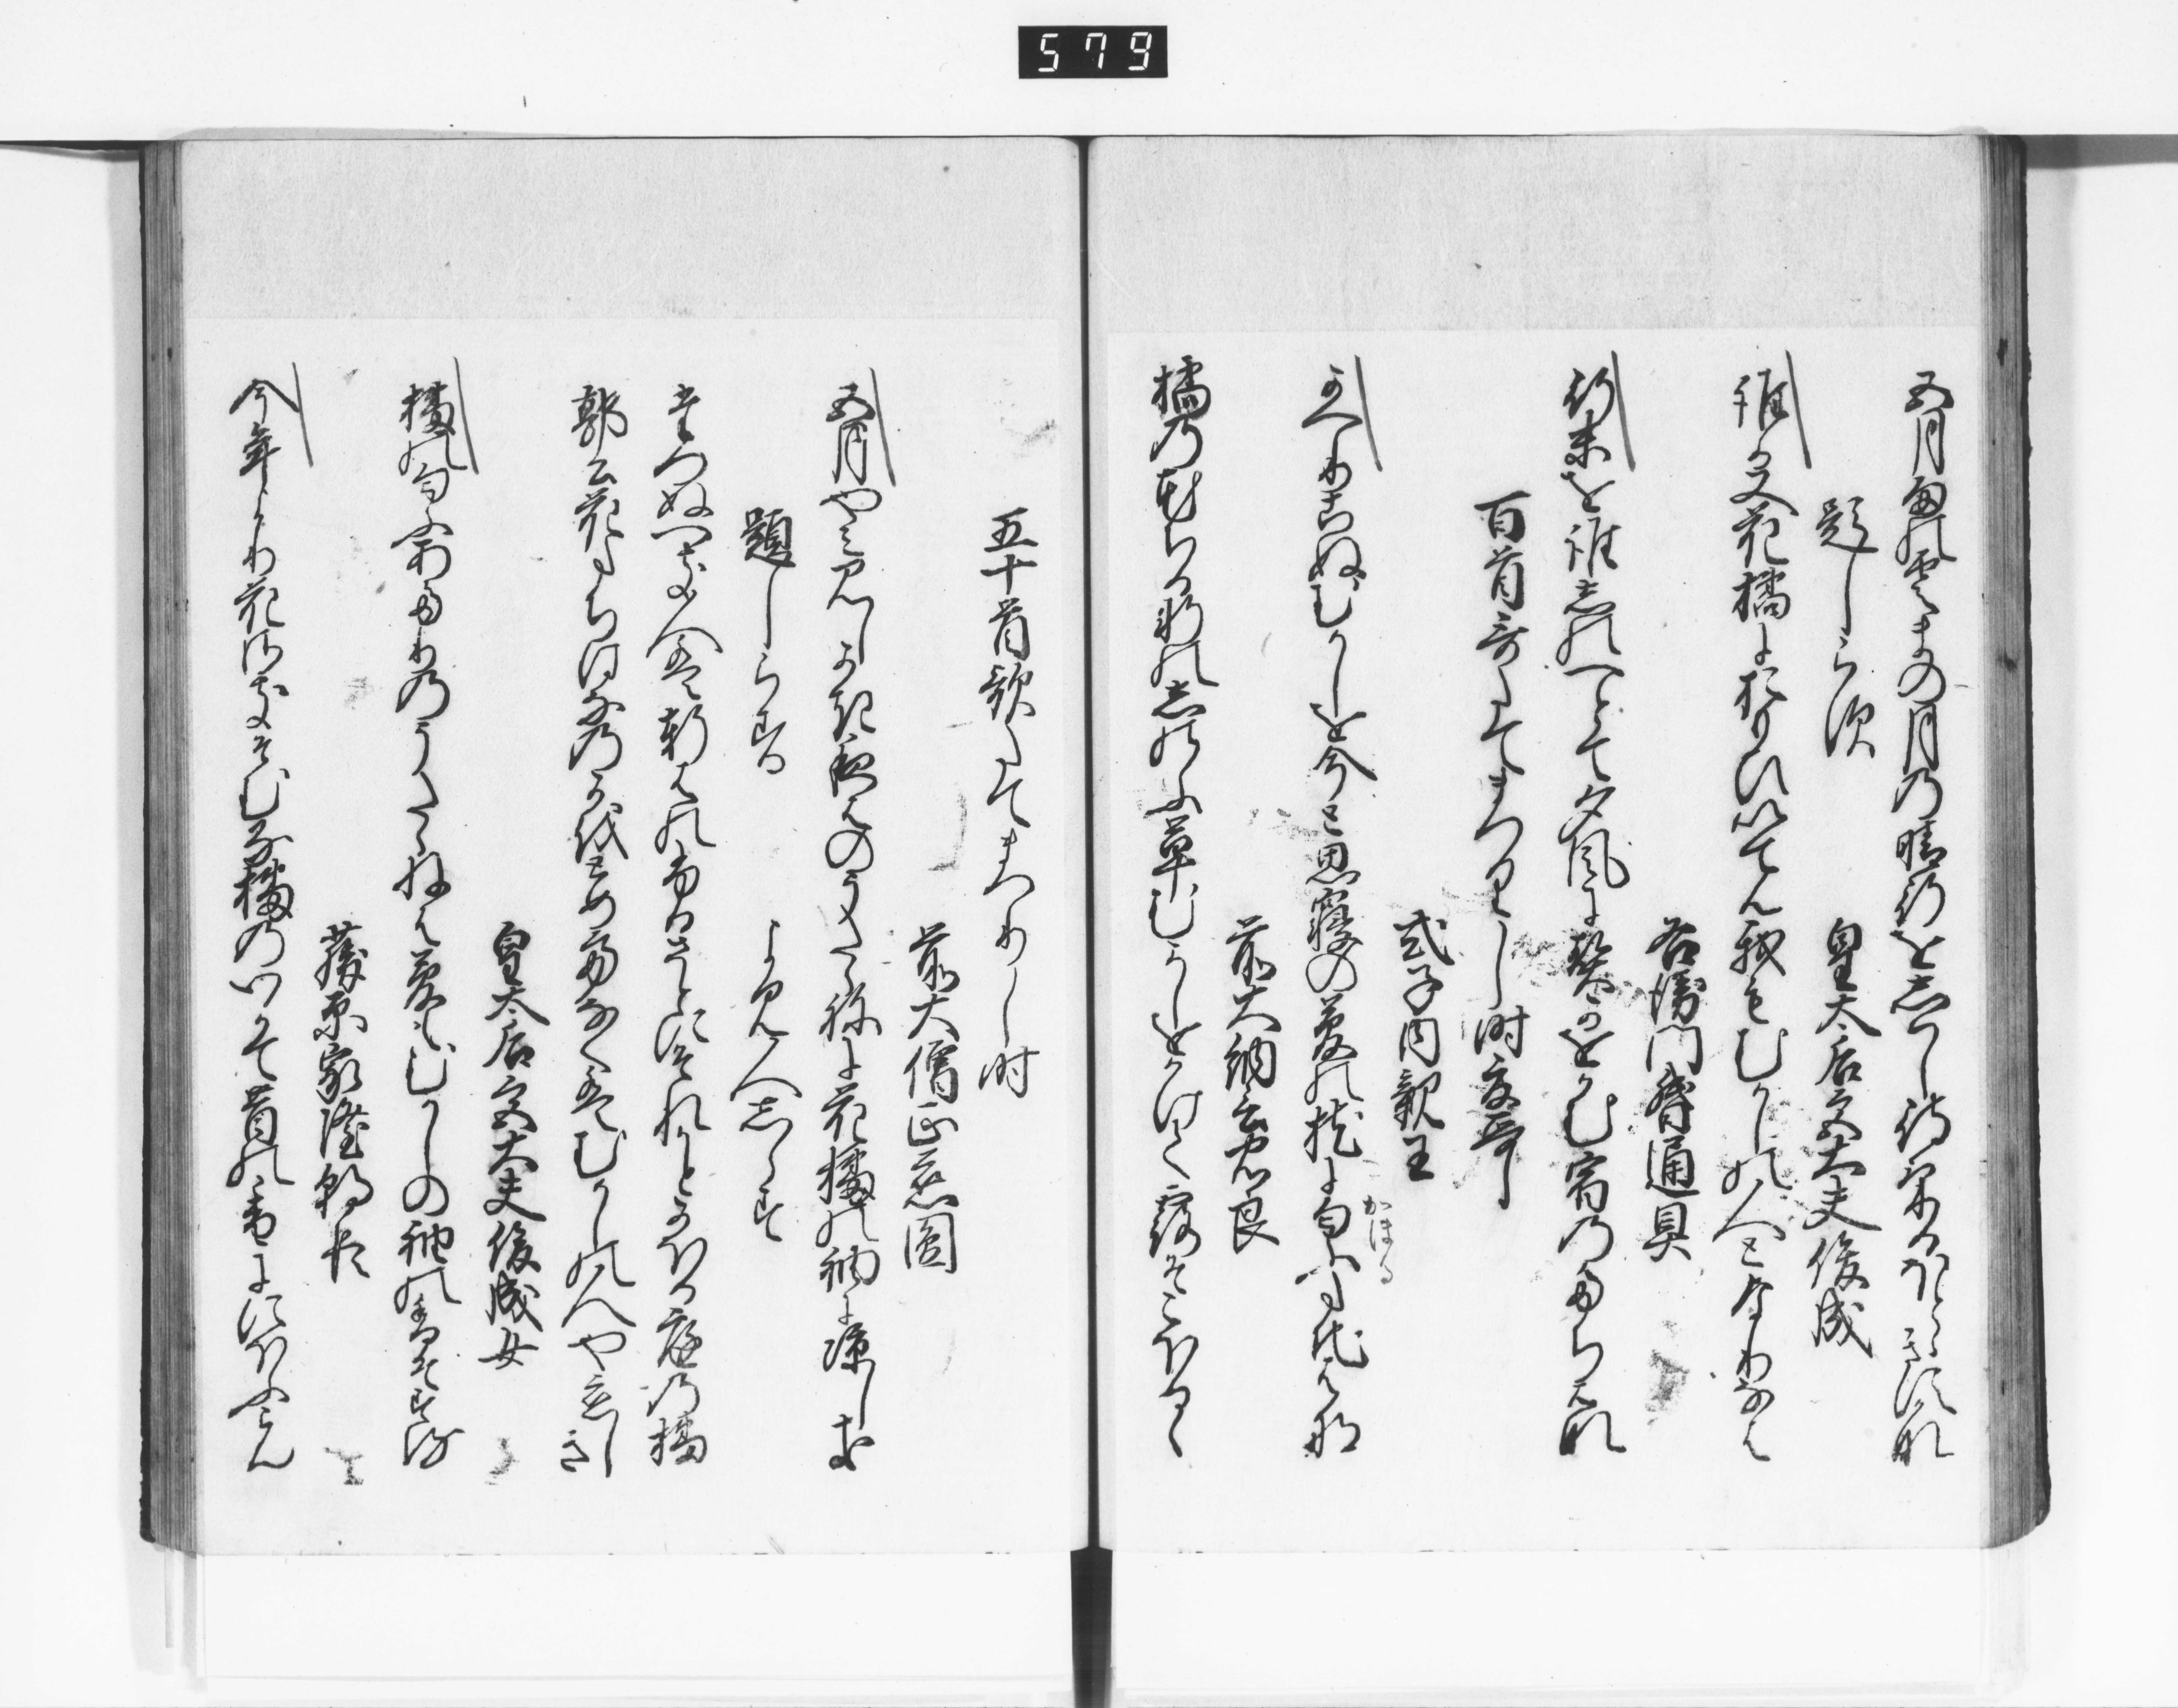 五月雨の雲まの月の晴行をしはし待ける郭公哉
題しらす
皇太后宮大夫俊成
誰か又花橘におもひいてん我もむかしの人となりなは
右衛門督通具
行末を誰しのへとて夕風に契かをかむ宿のたち花
百首哥たてまつりし時夏哥
式子内親王
かへりこぬむかしを今と思寝の夢の枕に匂ふたち花
かほる
前大納言忠良
橘の花ちる軒のしのふ草むかしをかけて露そこほるゝ
五十首歌たてまつりし時
前大僧正慈圓
五月やみみしかき夜はのうたゝねに花橘の袖に涼しき
題しらす
よみ人しらす
たつぬへき人は軒はの故さとにそれかとかほる庭の橘
郭公花たちはなの香をとめてなくはむかしの人や恋しき
皇太后宮大夫俊成女
橘の匂ふあたりのうたゝねは夢もむかしの袖の香そする
藤原家隆朝臣
今年より花咲そむる橘のいかて昔の香にゝほふらん
579